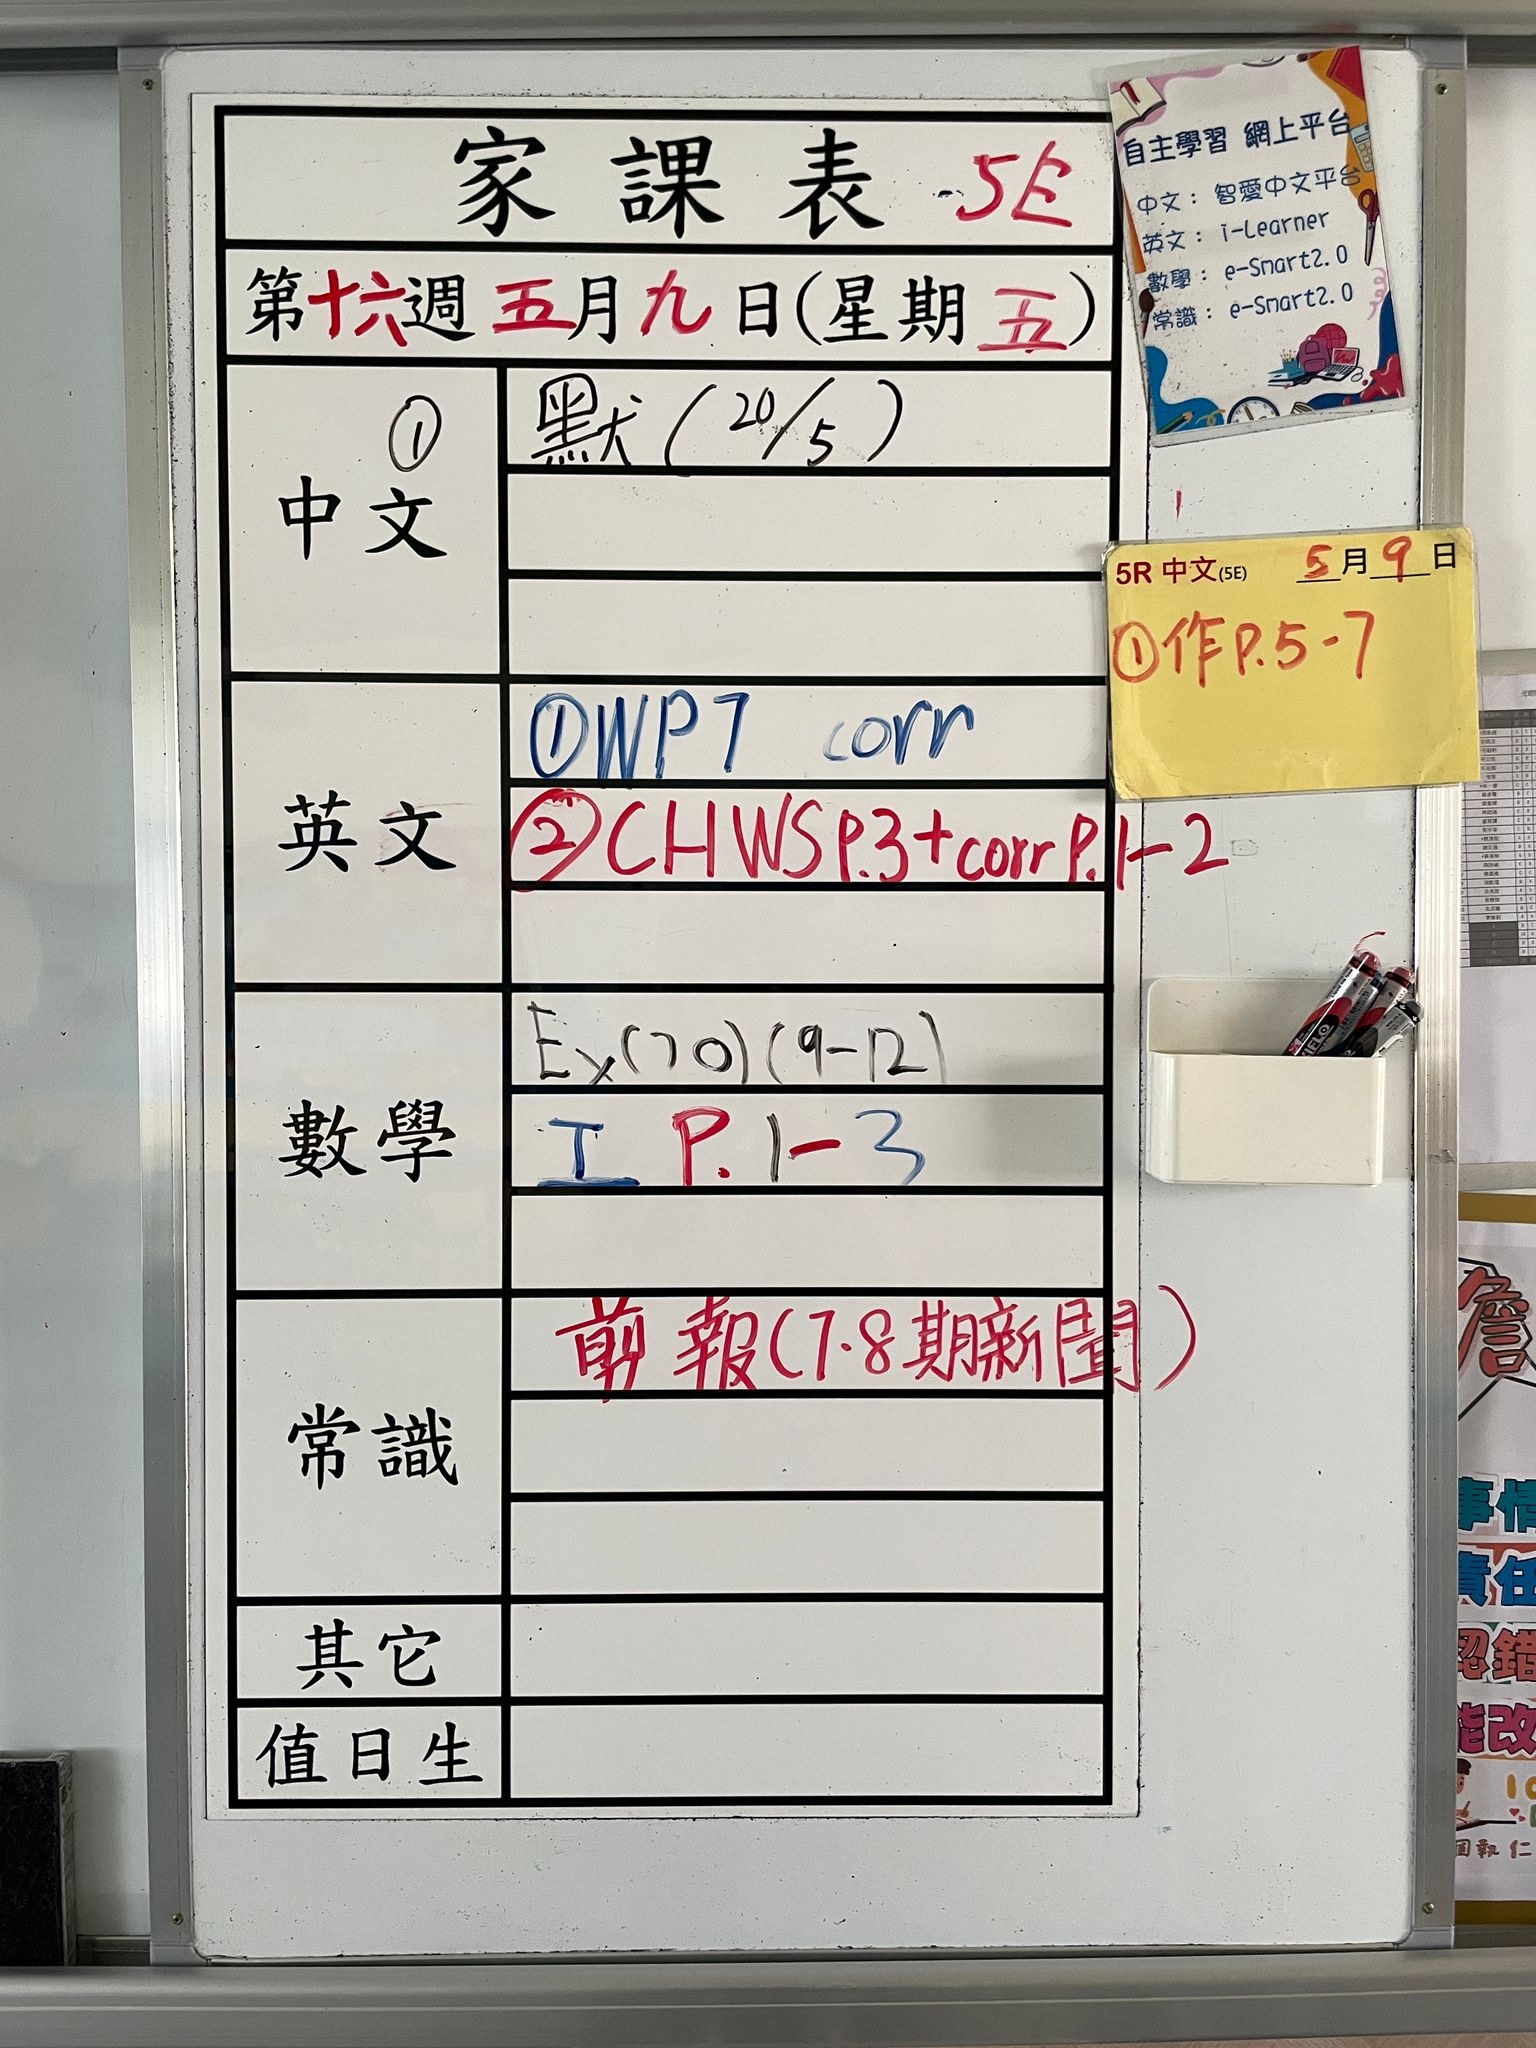 家課表 5E
第十六週 五月九日(星期五)
中文
① 默(20/5)
英文
①WP7 corr
②CHWSP.3+corrP.1-2
數學
Ex(70)(9-12)
工 P.1-3
常識
剪報(7.8期新聞)
其它
值日生
自主學習 網上平台
中文: 智愛中文平台
英文: i-Learner
數學: e-Smart2.0
常識: e-Smart2.0
5R 中文(5E) 5月9日
①作P.5-7
事情
責任
認錯
能改